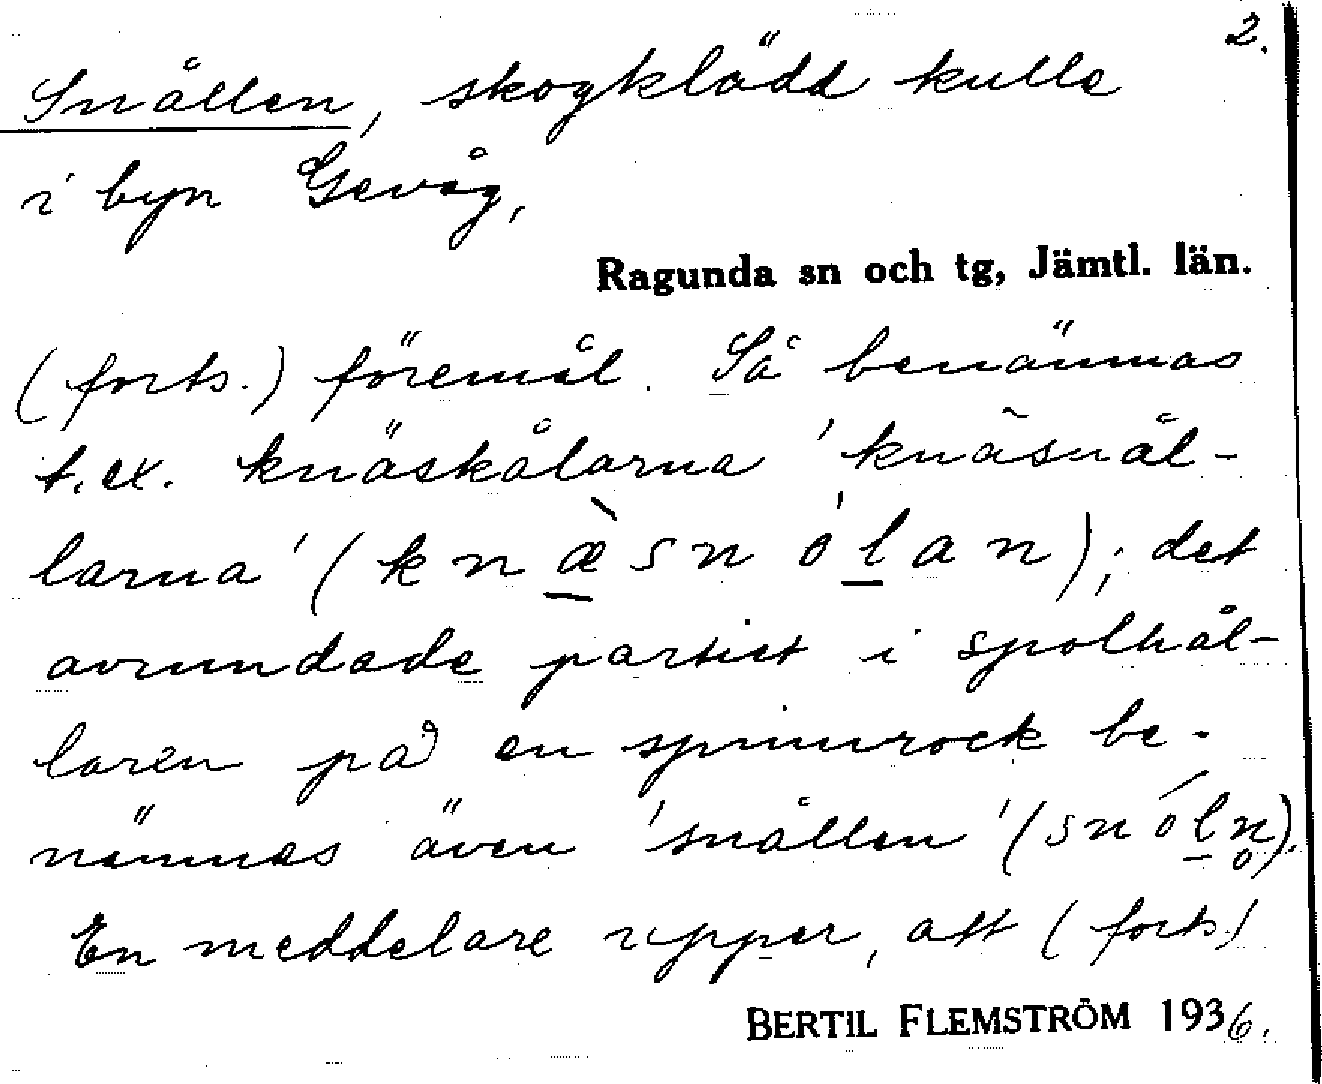 2.
Snållen, skogklädd kulle
i byn Gevåg,
Ragunda sn och tg, Jämtl. län.
(forts.) föremål. Så benämnas
t.ex. knäskålarna 'knäsnål-
larna' (knæ̀snólan); det
avrundade partiet i spolhål-
laren på en spinnrock be-
nämnes även 'snållen' (snóln̥).
En meddelare upper, att (forts)
BERTIL FLEMSTRÖM 1936.